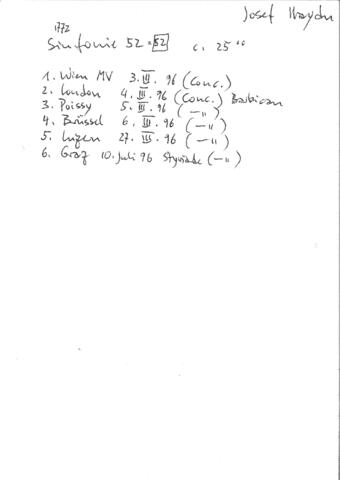 Josef Haydn
1772
Sinfonie 52 = 52 c. 25"
1. Wien MV 3. III. 96 (Conc.)
2. London 4. III. 96 (Conc.) Barbican
3. Poissy 5. III. 96 (—"—)
4. Brüssel 6. III. 96 (—"—)
5. Luzern 27. III. 96 (—"—)
6. Graz 10. Juli 96 Styriarte (—"—)